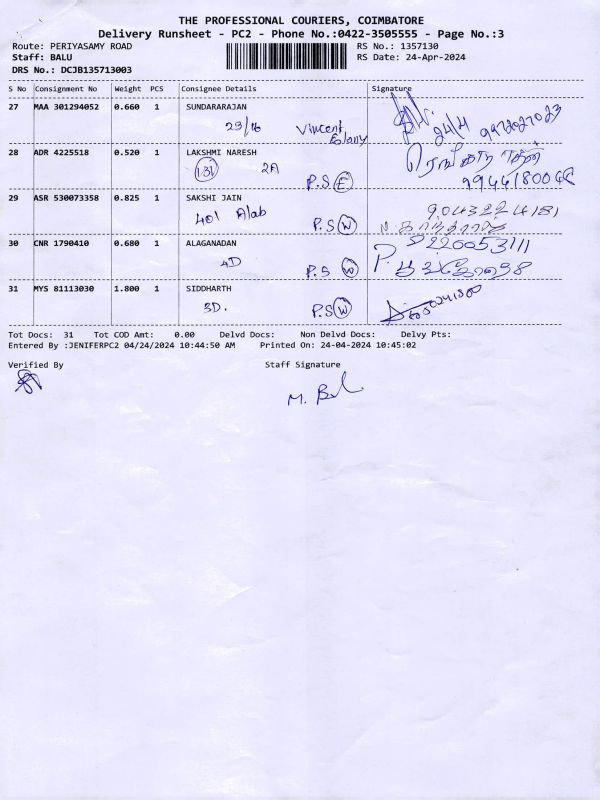 THE PROFESSIONAL COURIERS, COIMBATORE
Delivery Runsheet - PC2 - Phone No.:0422-3505555 - Page No.:3
Route: PERIYASAMY ROAD RS No.: 1357130
Staff: BALU RS Date: 24-Apr-2024
DRS No.: DCJB135713003
S No Consignment No Weight PCS Consignee Details Signature
27 MAA 301294052 0.660 1 SUNDARARAJAN
29/16 Vincent Colony 24/4
28 ADR 4225518 0.520 1 LAKSHMI NARESH
131 2A P.S E
29 ASR 530073358 0.825 1 SAKSHI JAIN
401 Alab P.S W
30 CNR 1790410 0.680 1 ALAGANADAN
4D P.S W
31 MYS 81113030 1.800 1 SIDDHARTH
3D. P.S W
Tot Docs: 31 Tot COD Amt: 0.00 Delvd Docs: Non Delvd Docs: Delvy Pts:
Entered By :JENIFERPC2 04/24/2024 10:44:50 AM Printed On: 24-04-2024 10:45:02
Verified By Staff Signature